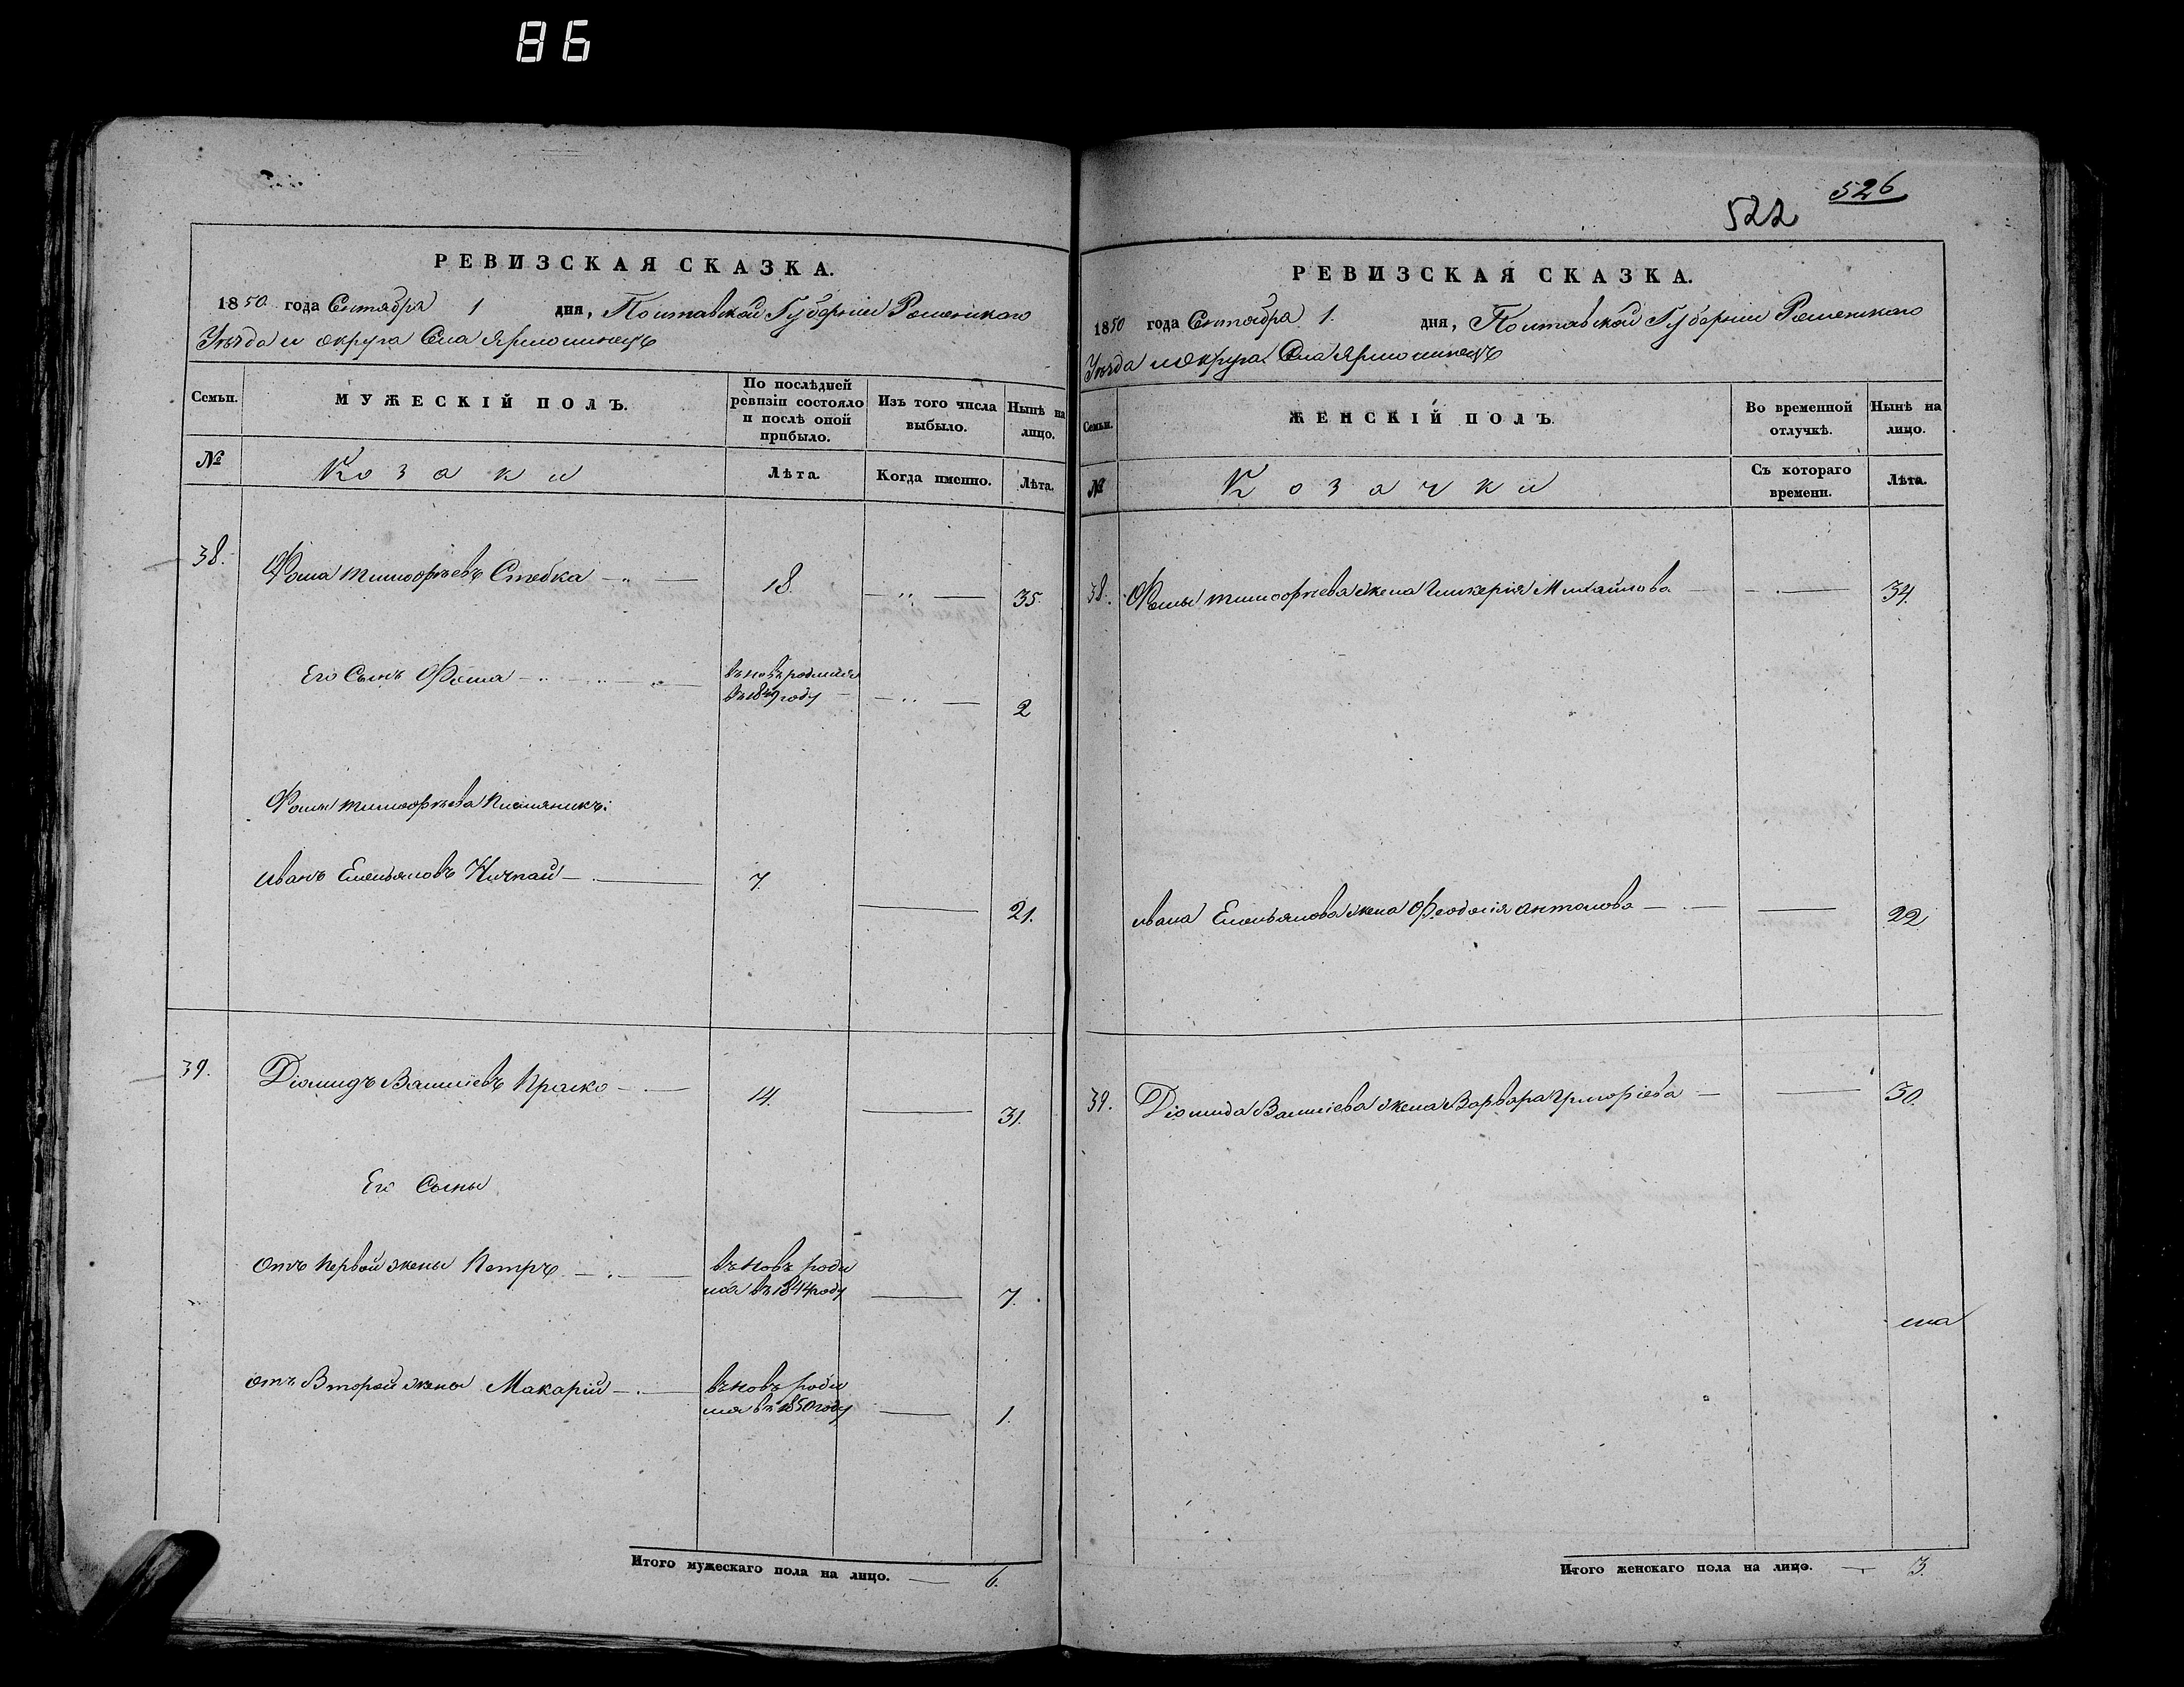 86
526
522
РЕВИЗСКАЯ СКАЗКА.
1850 года Сентября 1 дня, Полтавской Губерніи Роменскаго
Уѣзда и округа Села Ярмолинецъ
Семьи.
МУЖЕСКІЙ ПОЛЪ.
По послѣдней ревизіи состояло и послѣ оной прибыло.
Изъ того числа выбыло.
Нынѣ на лицо.
№
Козаки
Лѣта.
Когда именно.
Лѣта.
38. Фома Тимофѣевъ Стебка 18. 35.
Его Сынъ Фома вновъ родился
въ 1849 году 2
Фомы Тимофѣева Племяникъ:
Иванъ Емельяновъ Ничпай 7. 21.
39. Діомидъ Василіевъ Краско 14. 31.
Его Сыны
Отъ Первой жены Петръ вновъ роди
лся въ 1844 году 7.
отъ Второй жены Макарій вновъ роди
лся въ 1850 году 1.
Итого мужескаго пола на лицо. — 6.
РЕВИЗСКАЯ СКАЗКА.
1850 года Сентября 1. дня, Полтавской Губерніи Роменскаго
Уѣзда и Округа Села Ярмолинецъ
Семьи.
ЖЕНСКІЙ ПОЛЪ.
Во временной отлучкѣ.
Нынѣ на лицо.
№
Козачки
Съ котораго времени.
Лѣта.
38. Фомы Тимофѣева жена Гликерія Михайлова 34.
Ивана Емельянова жена Феодосія Антонова 22
39. Діомида Василіева жена Варвара Григоріева 30.
Итого женскаго пола на лицо. — 3.